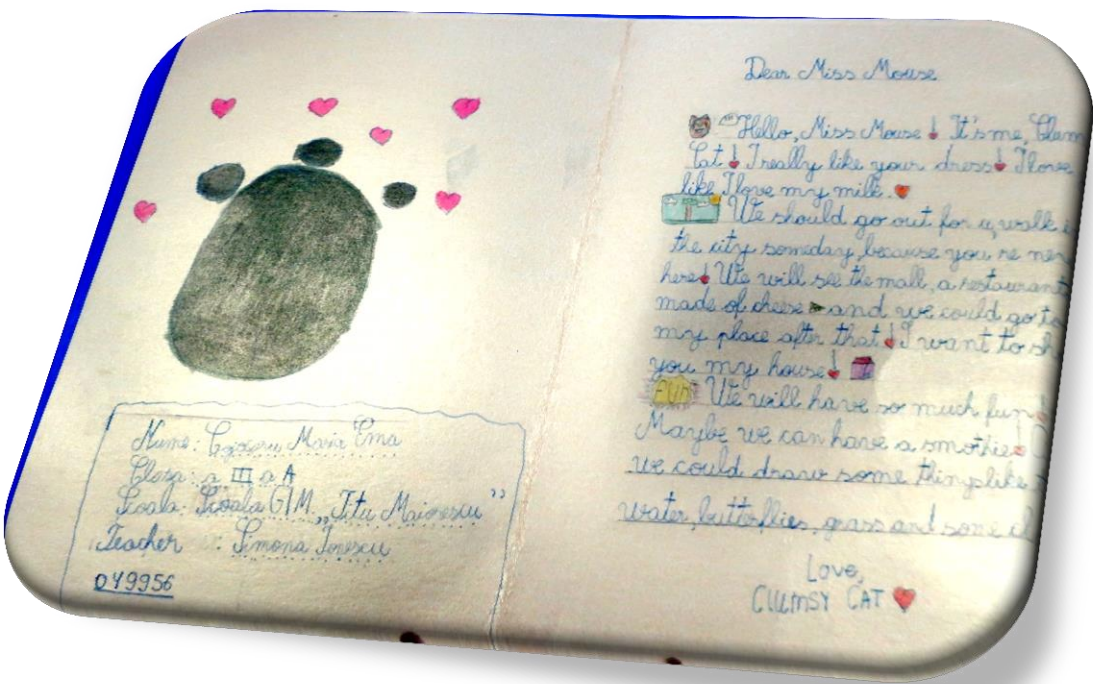 Nume: Maria Ema
Clasa: a III a A
Scoala: Scoala GIM. „Titu Maiorescu”
Teacher : Simona Ionescu
049956
Dear Miss Mouse
Hello, Miss Mouse! It's me,
Cat! I really like your dress! I love
like I love my milk.
We should go out for a walk
the city someday, because you're
here! We will see the mall, a restaurant
made of cheese and we could go to
my place after that! I want to
you my house!
FUN We will have so much fun!
Maybe we can have a smothie!
we could draw some things like
water, butterflies, grass and some
Love,
CLUMSY CAT